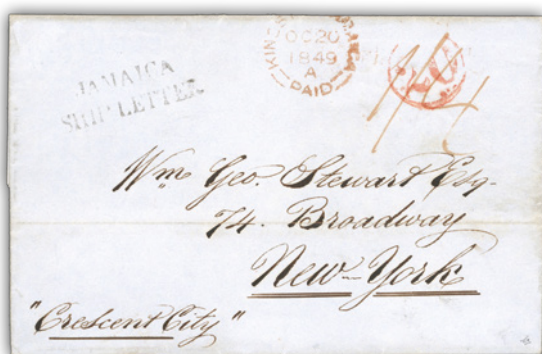 JAMAICA
SHIP LETTER
OC 20
1849
A
PAID
Wm Geo. Stewart Esq.
74. Broadway
New-York
"Crescent City"